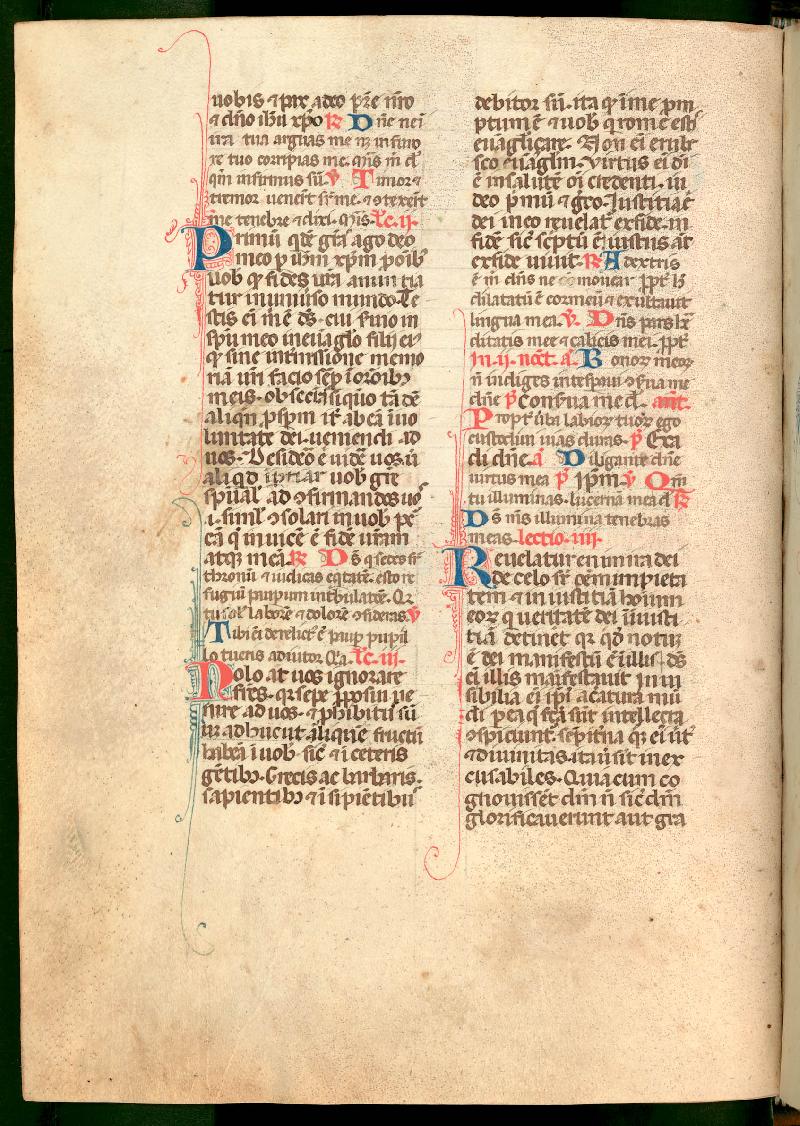 uobis ⁊ pax a deo pr̄e nr̄o
⁊ dn̄o ih̄u xp̄o R̸ Dn̄e neī
ira tua arguas me nꝫ in furo
re tuo corripias me. m̄s m̄ d̄
qm̄ infirmus sū. v̄ Timor ⁊
tremor uenert̄ sr̄ me. ⁊ ↄtexert̄
me tenebre ⁊ dixi. m̄s. lc̄. ii.
Primū qdē grās ago deo
meo p ih̄m xp̄m ꝓ oīb
uob qꝛ fides ur̄a anuntia
tur in uniuso mundo. Te
stis eī m̄ ē ds̄. cui s̄uio in
sp̄u meo in euāglo filii ei⁹
qꝛ sine intmissione memo
riā ur̄i facio semp̄ ī oroībꝫ
meis. obsecs̄ si quo ..d̄ ..
aliqn̄ psp̄m it̄ abeā ī uo
luntate dei. ueniendi ad
uos. Desideo ē uidē uos. ū
aliqd ip̄tiar uob grē
sp̄ual ad ↄfirmandos uo⁹
.i. siml̄ ↄsolari in uob pē
eā q̄ inuicē ē fidē ur̄am
atqꝫ meā. R̸ Ds̄ q̄ sedes sr̄
thronū ⁊ iudicas eqtatē. esto re
fugiū paupum in tbulatōē. Qꝛ
tu sol laborē ⁊ dolorē ↄsideras. v̄
Tibi eī derelict̄ ē paup pupil
lo tu eris adiutor. Qꝛ. lc̄. iii.
Nolo āt uos ignorare
frēs. qꝛ sepe ꝓposui ue
nire ad uos. ⁊ ꝓhibitꝰ sū
usꝗ adhuc ut aliquē fructū
habeā ī uob. sic̄ ⁊ ī ceteris
gētibꝫ. Grecis ac barbaris.
sapientibꝫ ⁊ īsipiētibꝰ
debitor sū. ita qꝛ ī me ꝓm
ptum ē ⁊ uob q̄ rome estis
euāgliçare. Non eī erube
sco euāglm̄. virtus eī di
ē in salutē oī credenti. iu
deo p̄mū ⁊ gꝛo. Justitia ē
dei in eo reuelat̄ ex fide. in
fidē sic̄ sc̄ptū ē iustus āt
ex fide uiuit. R̸ A dextris
ē m̄ dn̄s ne comouear ꝓpt̄ h̄
dilatatū ē cor meū ⁊ exultauit
lingua mea. v̄. Dn̄s pars he
ditatis mee ⁊ calicis mei. ꝓpt̄
in. ii. noct̄. a. Bonorꝫ meorꝫ
n̄ indiges in te spaui ↄs̄ua me
dn̄e p̄ Conserua me d̄. ant.
Propt̄ ūba labiorꝫ tuorꝫ ego
custodiui uias duras. p̄ Exa
di dn̄e. a Diligam te dn̄e
uirtus mea p̄ ip̄m. v̄ Qm̄
tu illuminas. lucernā meā d̄ R̸
Ds̄ m̄s illumina tenebras
meas. lectio. iiii.
Reuelatur enim ira dei
de celo sr̄ oem̄ impieta
tem ⁊ in iustitiā homīm
eorꝫ q ueritatē dei ī iusti
tiā detinet qꝛ qd̄ notū
ē dei manifestū ē ī illis. ds̄
eī illis manifestauit. in ui
sibilia eī ip̄i⁹ a c̄atura mū
di p ea q̄ fc̄a sūt intellecta
ↄspiciunt̄. sep̄itna qꝫ ei⁹ ut̄⁹
⁊ diuinitas. ita ut sit inex
cusabiles. Quia cum co
gnouissēt dm̄ n̄ sic̄ dm̄
glorificauerunt aut gra